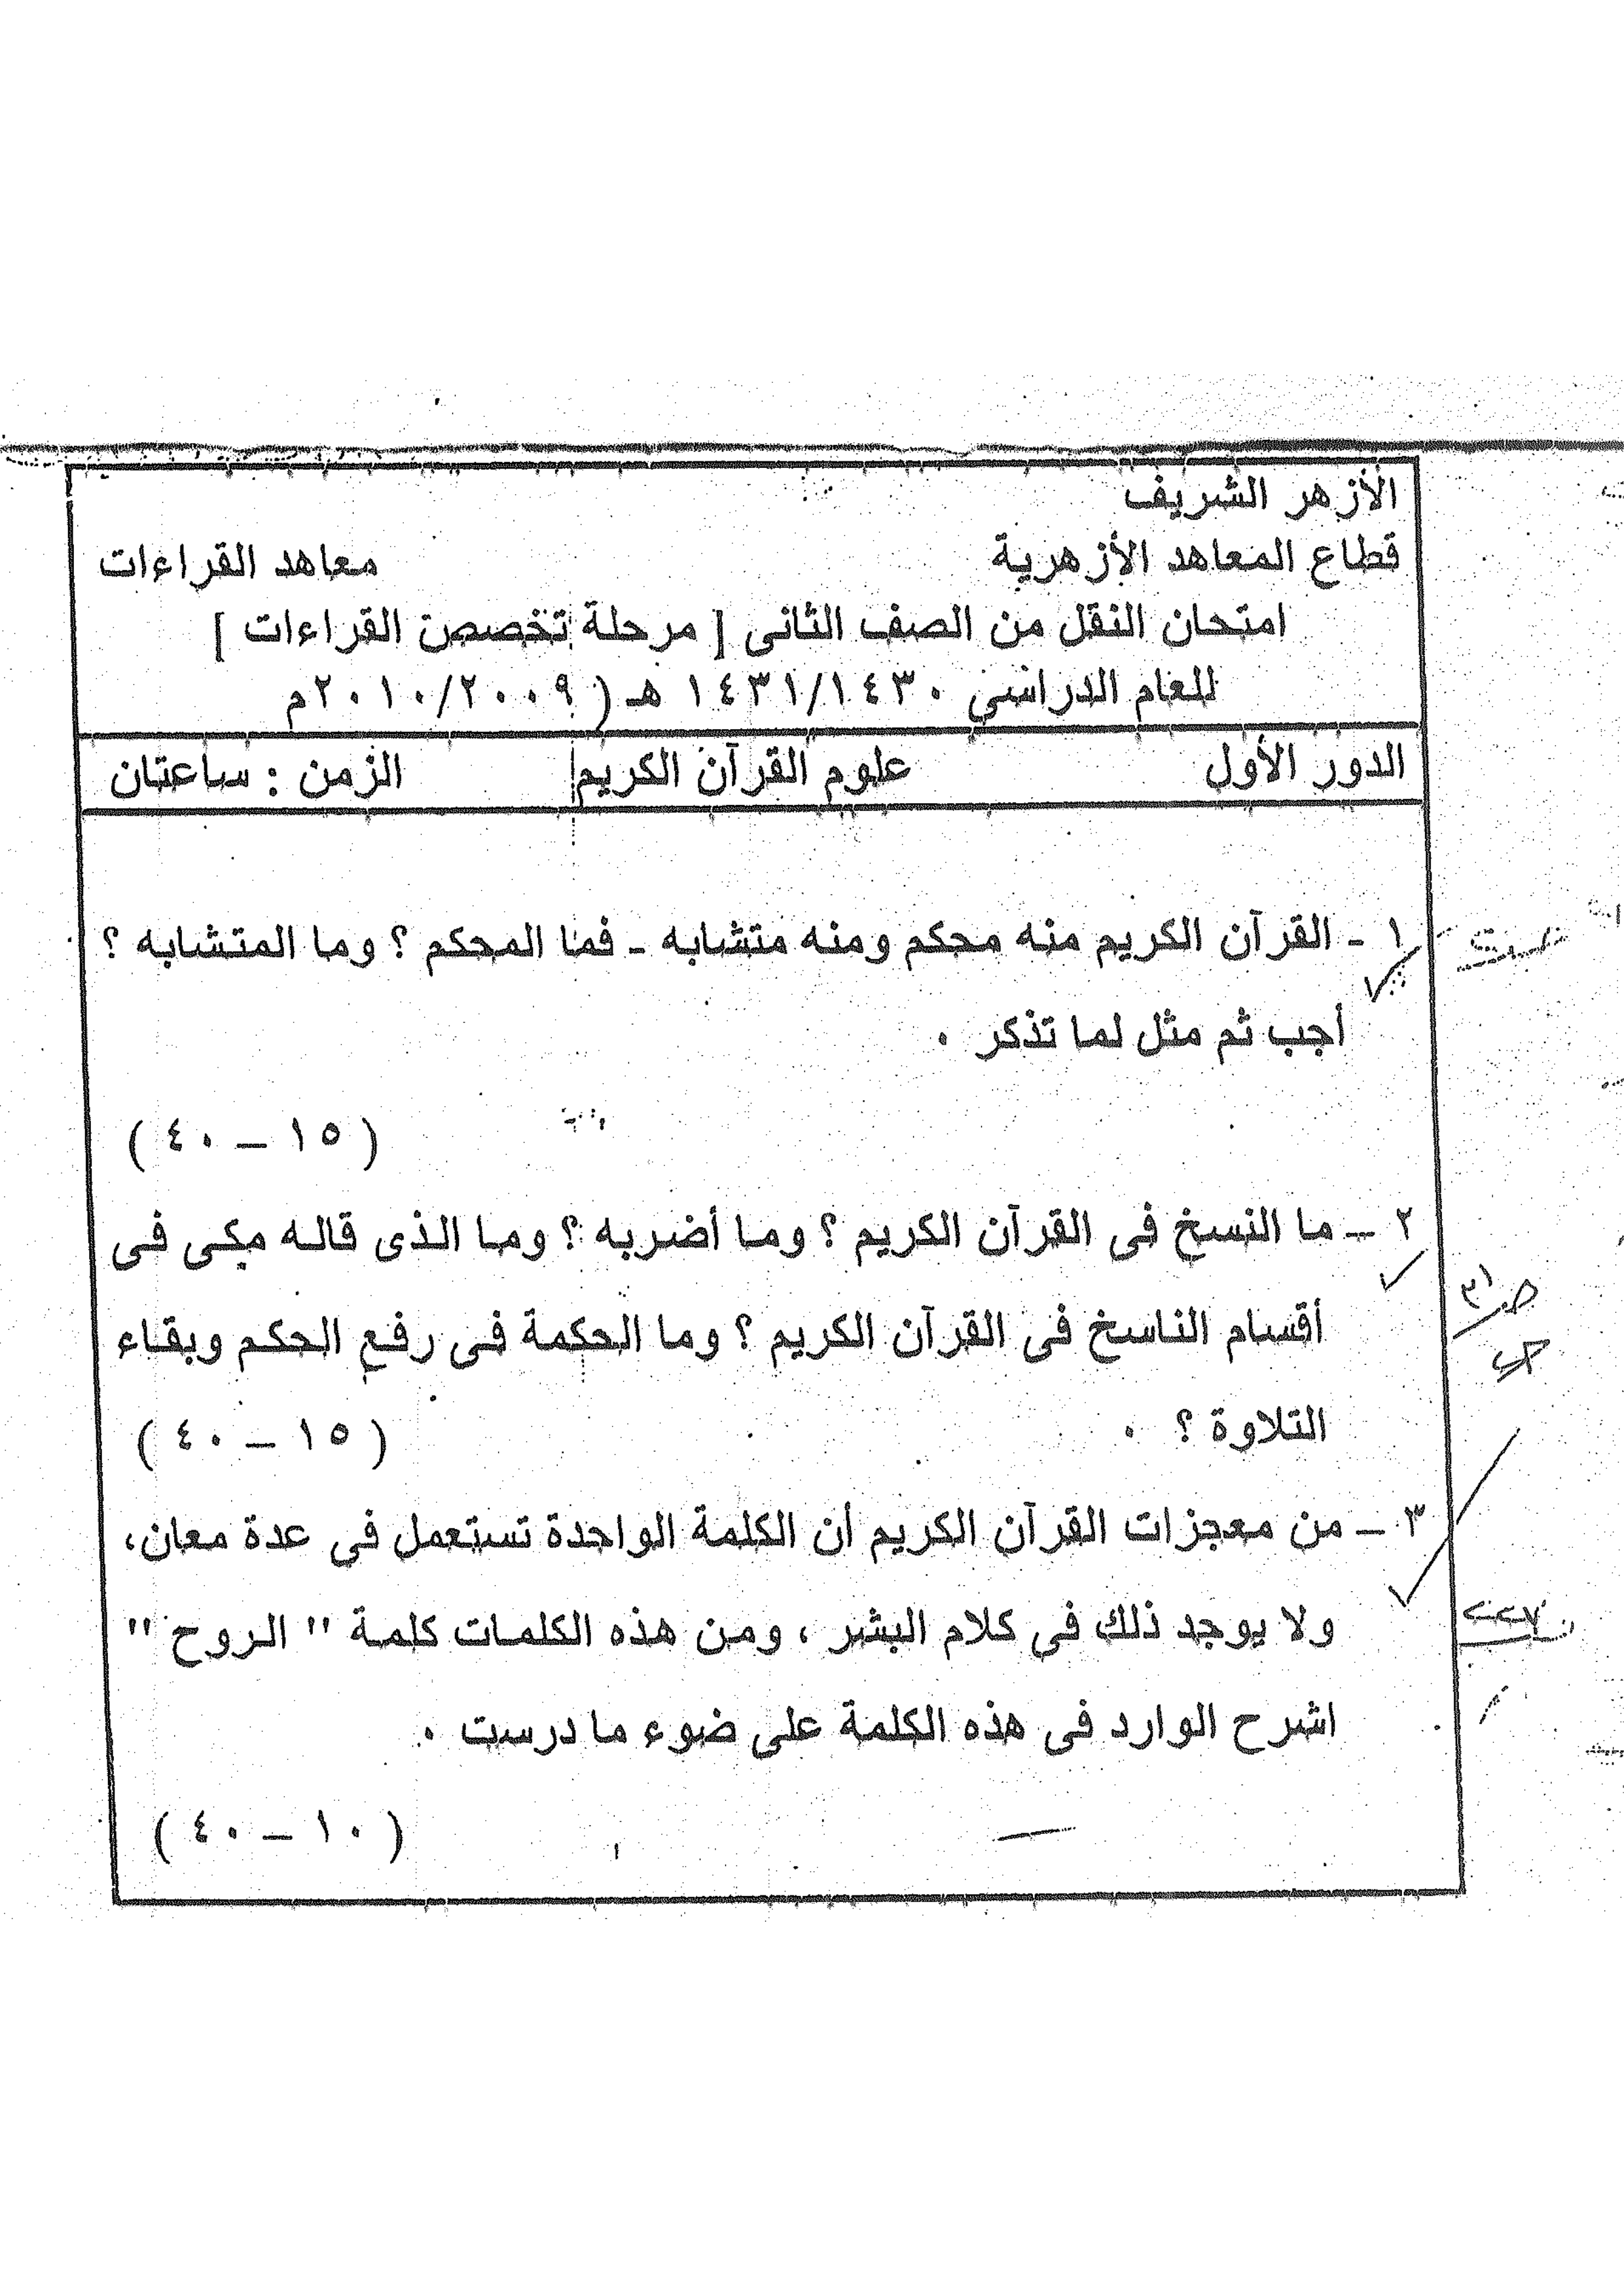 الأزهر الشريف
قطاع المعاهد الأزهرية معاهد القراءات
امتحان النقل من الصف الثانى [ مرحلة تخصص القراءات ]
للعام الدراسي ١٤٣١/١٤٣٠ هـ ( ٢٠١٠/٢٠٠٩م
الدور الأول علوم القرآن الكريم الزمن : ساعتان
١ - القرآن الكريم منه محكم ومنه متشابه - فما المحكم ؟ وما المتشابه ؟
أجب ثم مثل لما تذكر ٠
( ١٥ – ٤٠ )
٢ – ما النسخ فى القرآن الكريم ؟ وما أضربه ؟ وما الذى قاله مكى فى
ص ٣١
أقسام الناسخ فى القرآن الكريم ؟ وما الحكمة فى رفع الحكم وبقاء
التلاوة ؟ ٠ ( ١٥ – ٤٠ )
٣ – من معجزات القرآن الكريم أن الكلمة الواحدة تستعمل فى عدة معان،
ولا يوجد ذلك فى كلام البشر ، ومن هذه الكلمات كلمة " الروح "
اشرح الوارد فى هذه الكلمة على ضوء ما درست ٠
( ١٠ – ٤٠ )